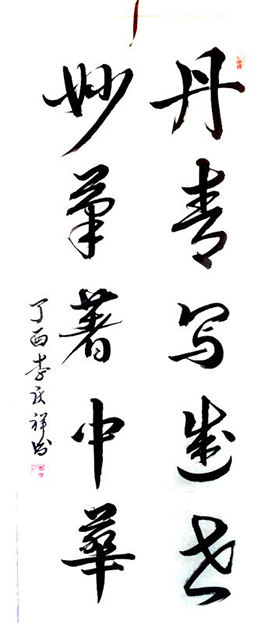 丹青写盛世
妙筆著中華
丁酉李庆祥书